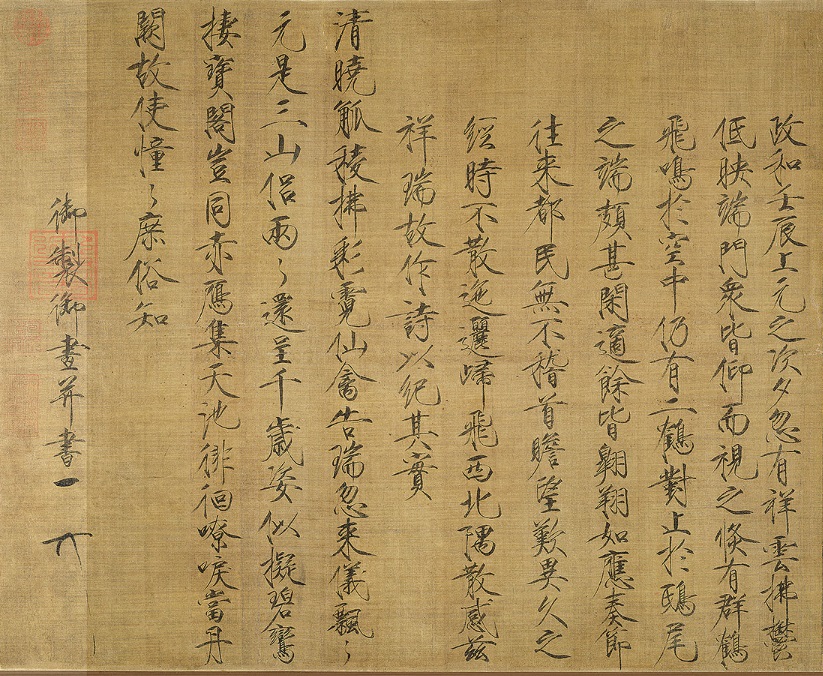 政和壬辰上元之次夕忽有祥雲拂欝
低映端門衆皆仰而視之倏有群鶴
飛鳴於空中仍有二鶴對止於鴟尾
之端頗甚閑適餘皆翱翔如應奏節
往来都民無不稽首瞻望歎異久之
經時不散迤邐歸飛西北隅散感兹
祥瑞故作詩以紀其實
清曉觚稜拂彩霓仙禽告瑞忽来儀飄〻
元是三山侣兩〻還呈千歳姿似擬碧鸞
棲寶閣豈同赤鴈集天池徘徊嘹唳當丹
闕故使憧〻庶俗知
御製御畫并書